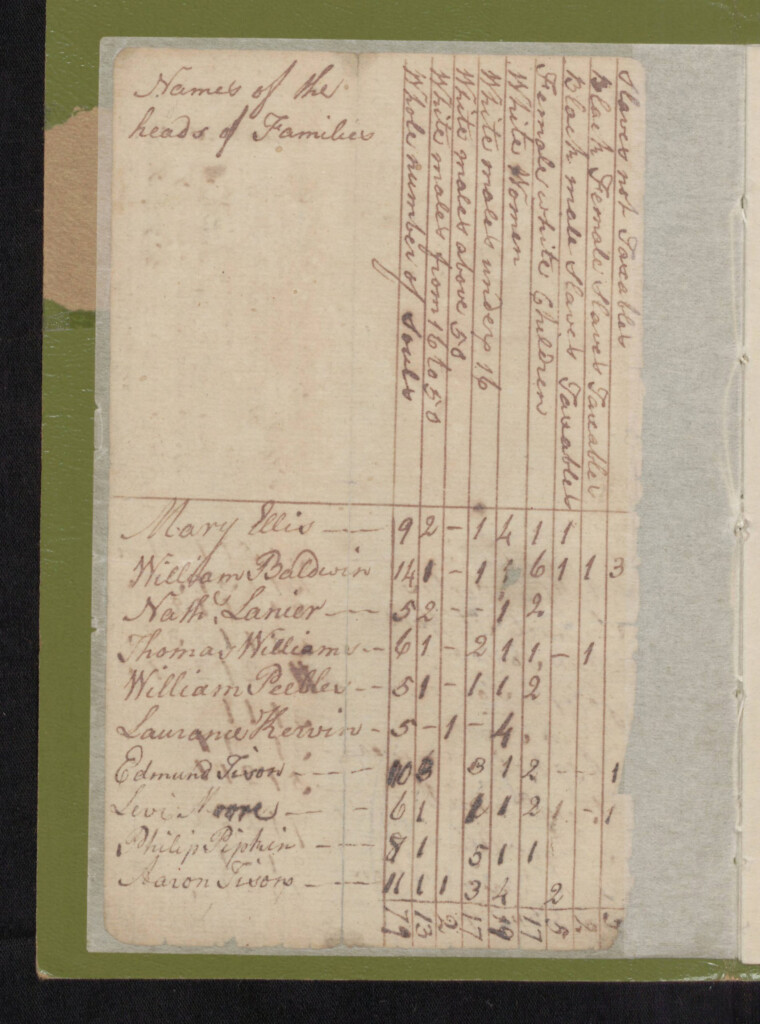 Names of the
heads of Families
Whole number of Souls
White males from 16 to 50
White males above 50
White males under 16
White Women
Female white Children
Black male Slaves Taxables
Black Female Slaves Taxables
Slaves not Taxables
Mary Ellis — 9 2 - 1 4 1 1
William Baldwin 14 1 - 1 1 6 1 1 3
Nath.l Lanier — 5 2 - - 1 2
Thomas Williams - - 6 1 - 2 1 1 - 1
William Peebles - - 5 1 - 1 1 2
Laurance Kervin - 5 - 1 - 4
Edmund Tison - - - - 10 3 3 1 2 - - 1
Levi Moore - - - 6 1 1 1 2 1 - 1
Philip Pipkin - - - 8 1 5 1 1
Aaron Tison - - - 11 1 1 3 4 2
79 13 2 17 19 17 5 2